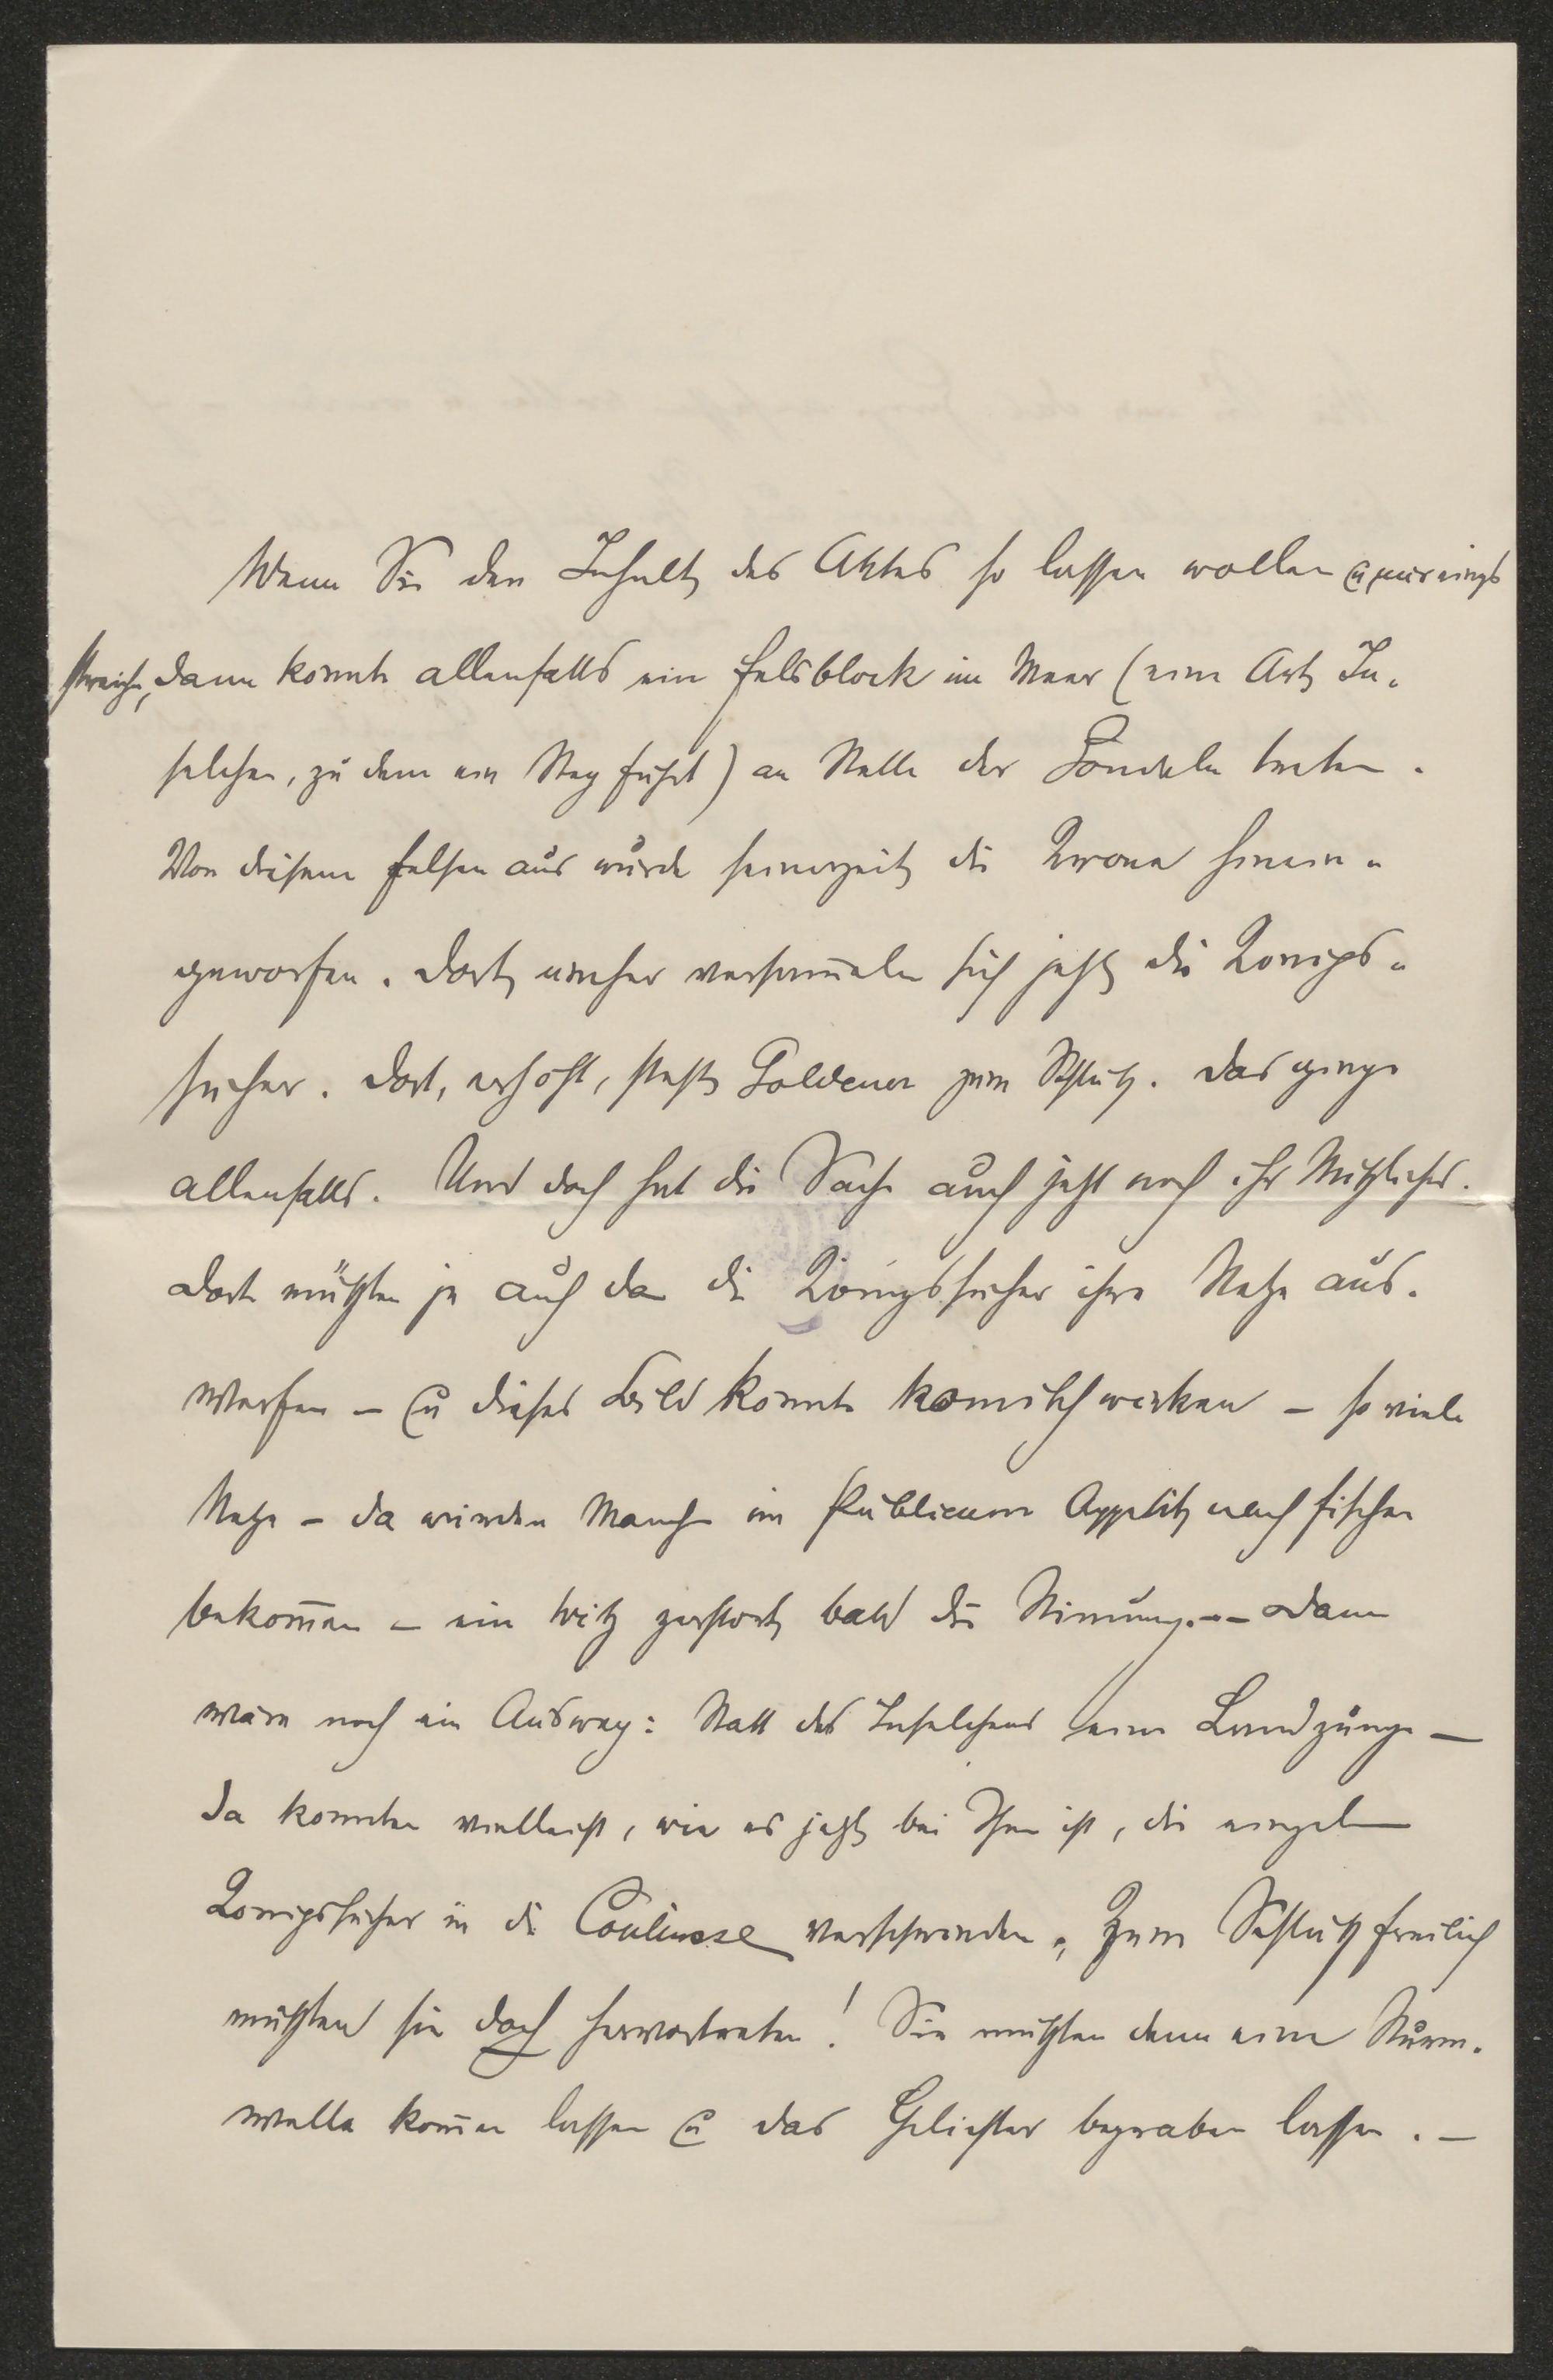 Wenn Sie den Inhalt des Aktes so lassen wollen u nur einiges
streichen, dann könnte allenfalls ein Felsblock im Meer (eine Art In-
selchen, zu dem ein Steg führt) an Stelle der Gondeln treten.
Von diesem Felsen aus wurde seinerzeit die Krone hinein-
geworfen. Dort umher versam̄eln sich jetzt die Königs-
sucher. Dort, erhöht, steht Goldener zum Schluß. Das ginge
allenfalls. Und doch hat die Sache auch jetzt noch ihr Mißliches.
Dort müßten ja auch da die Königssucher ihre Netze aus-
werfen – u dieses Bild könnte komisch wirken – so viele
Netze – da würden Manche im Publicum Appetit nach Fischen
bekom̄en – ein Witz zerstört bald die Stim̄ung. –– Dann
wäre noch ein Ausweg: Statt des Inselchens eine Landzunge –
Da könnten vielleicht, wie es jetzt bei Ihnen ist, die einzelnen
Königssucher in die Coulisse verschwinden. Zum Schluß freilich
müßten sie doch hervortreten! Sie müßten denn eine Sturm-
welle kom̄en lassen u das Gelichter begraben lassen. –